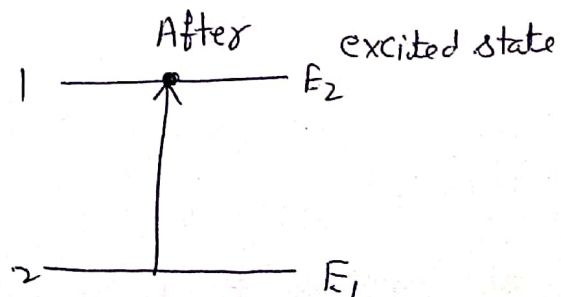 After
excited state
1 E₂
2 E₁